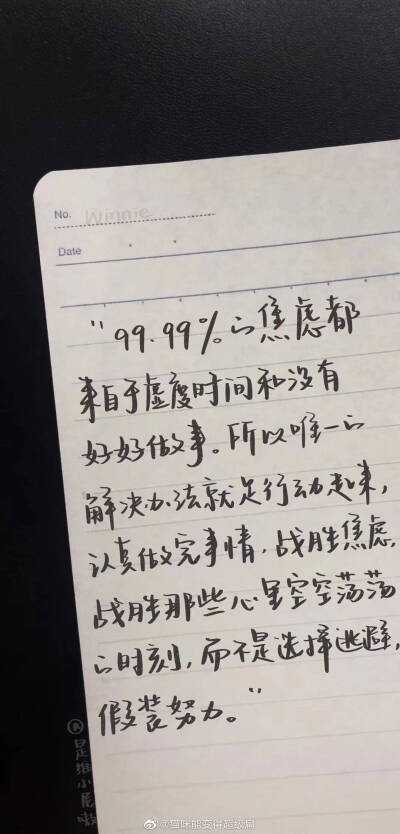 No. Winnie
Date
"99.99%的焦虑都
来自于虚度时间和没有
好好做事。所以唯一的
解决办法就是行动起来,
认真做完事情,战胜焦虑,
战胜那些心里空空荡荡
的时刻,而不是选择逃避,
假装努力。"
@猫咪能变得超级局